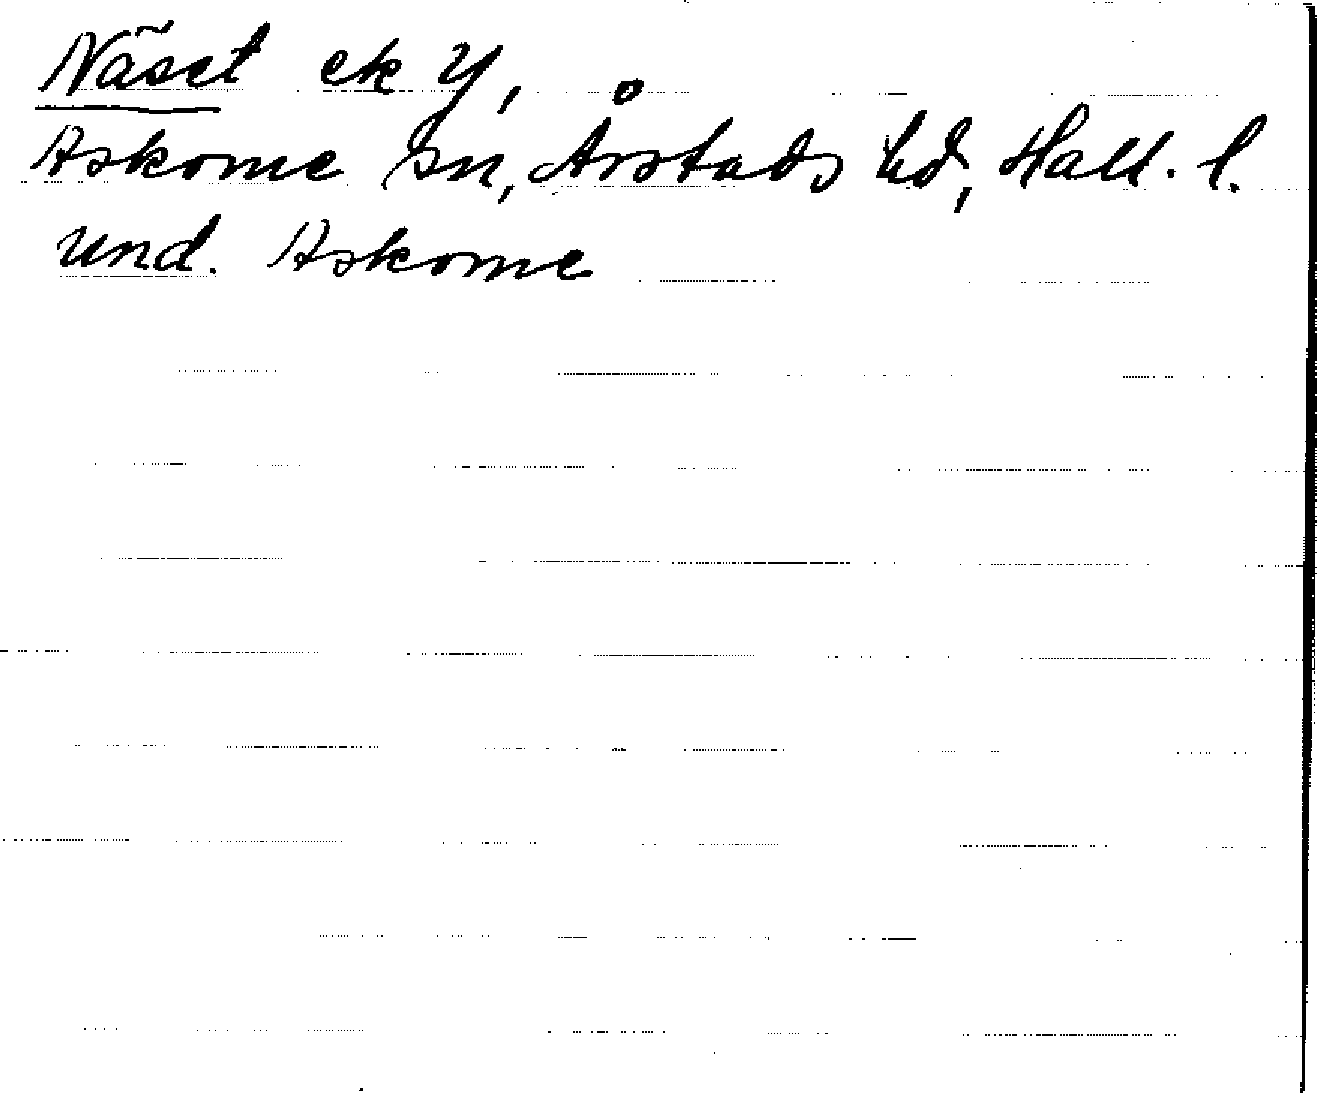 Näset ek Y,
Askome sn, Årstads hd, Hall. l.
und. Askome